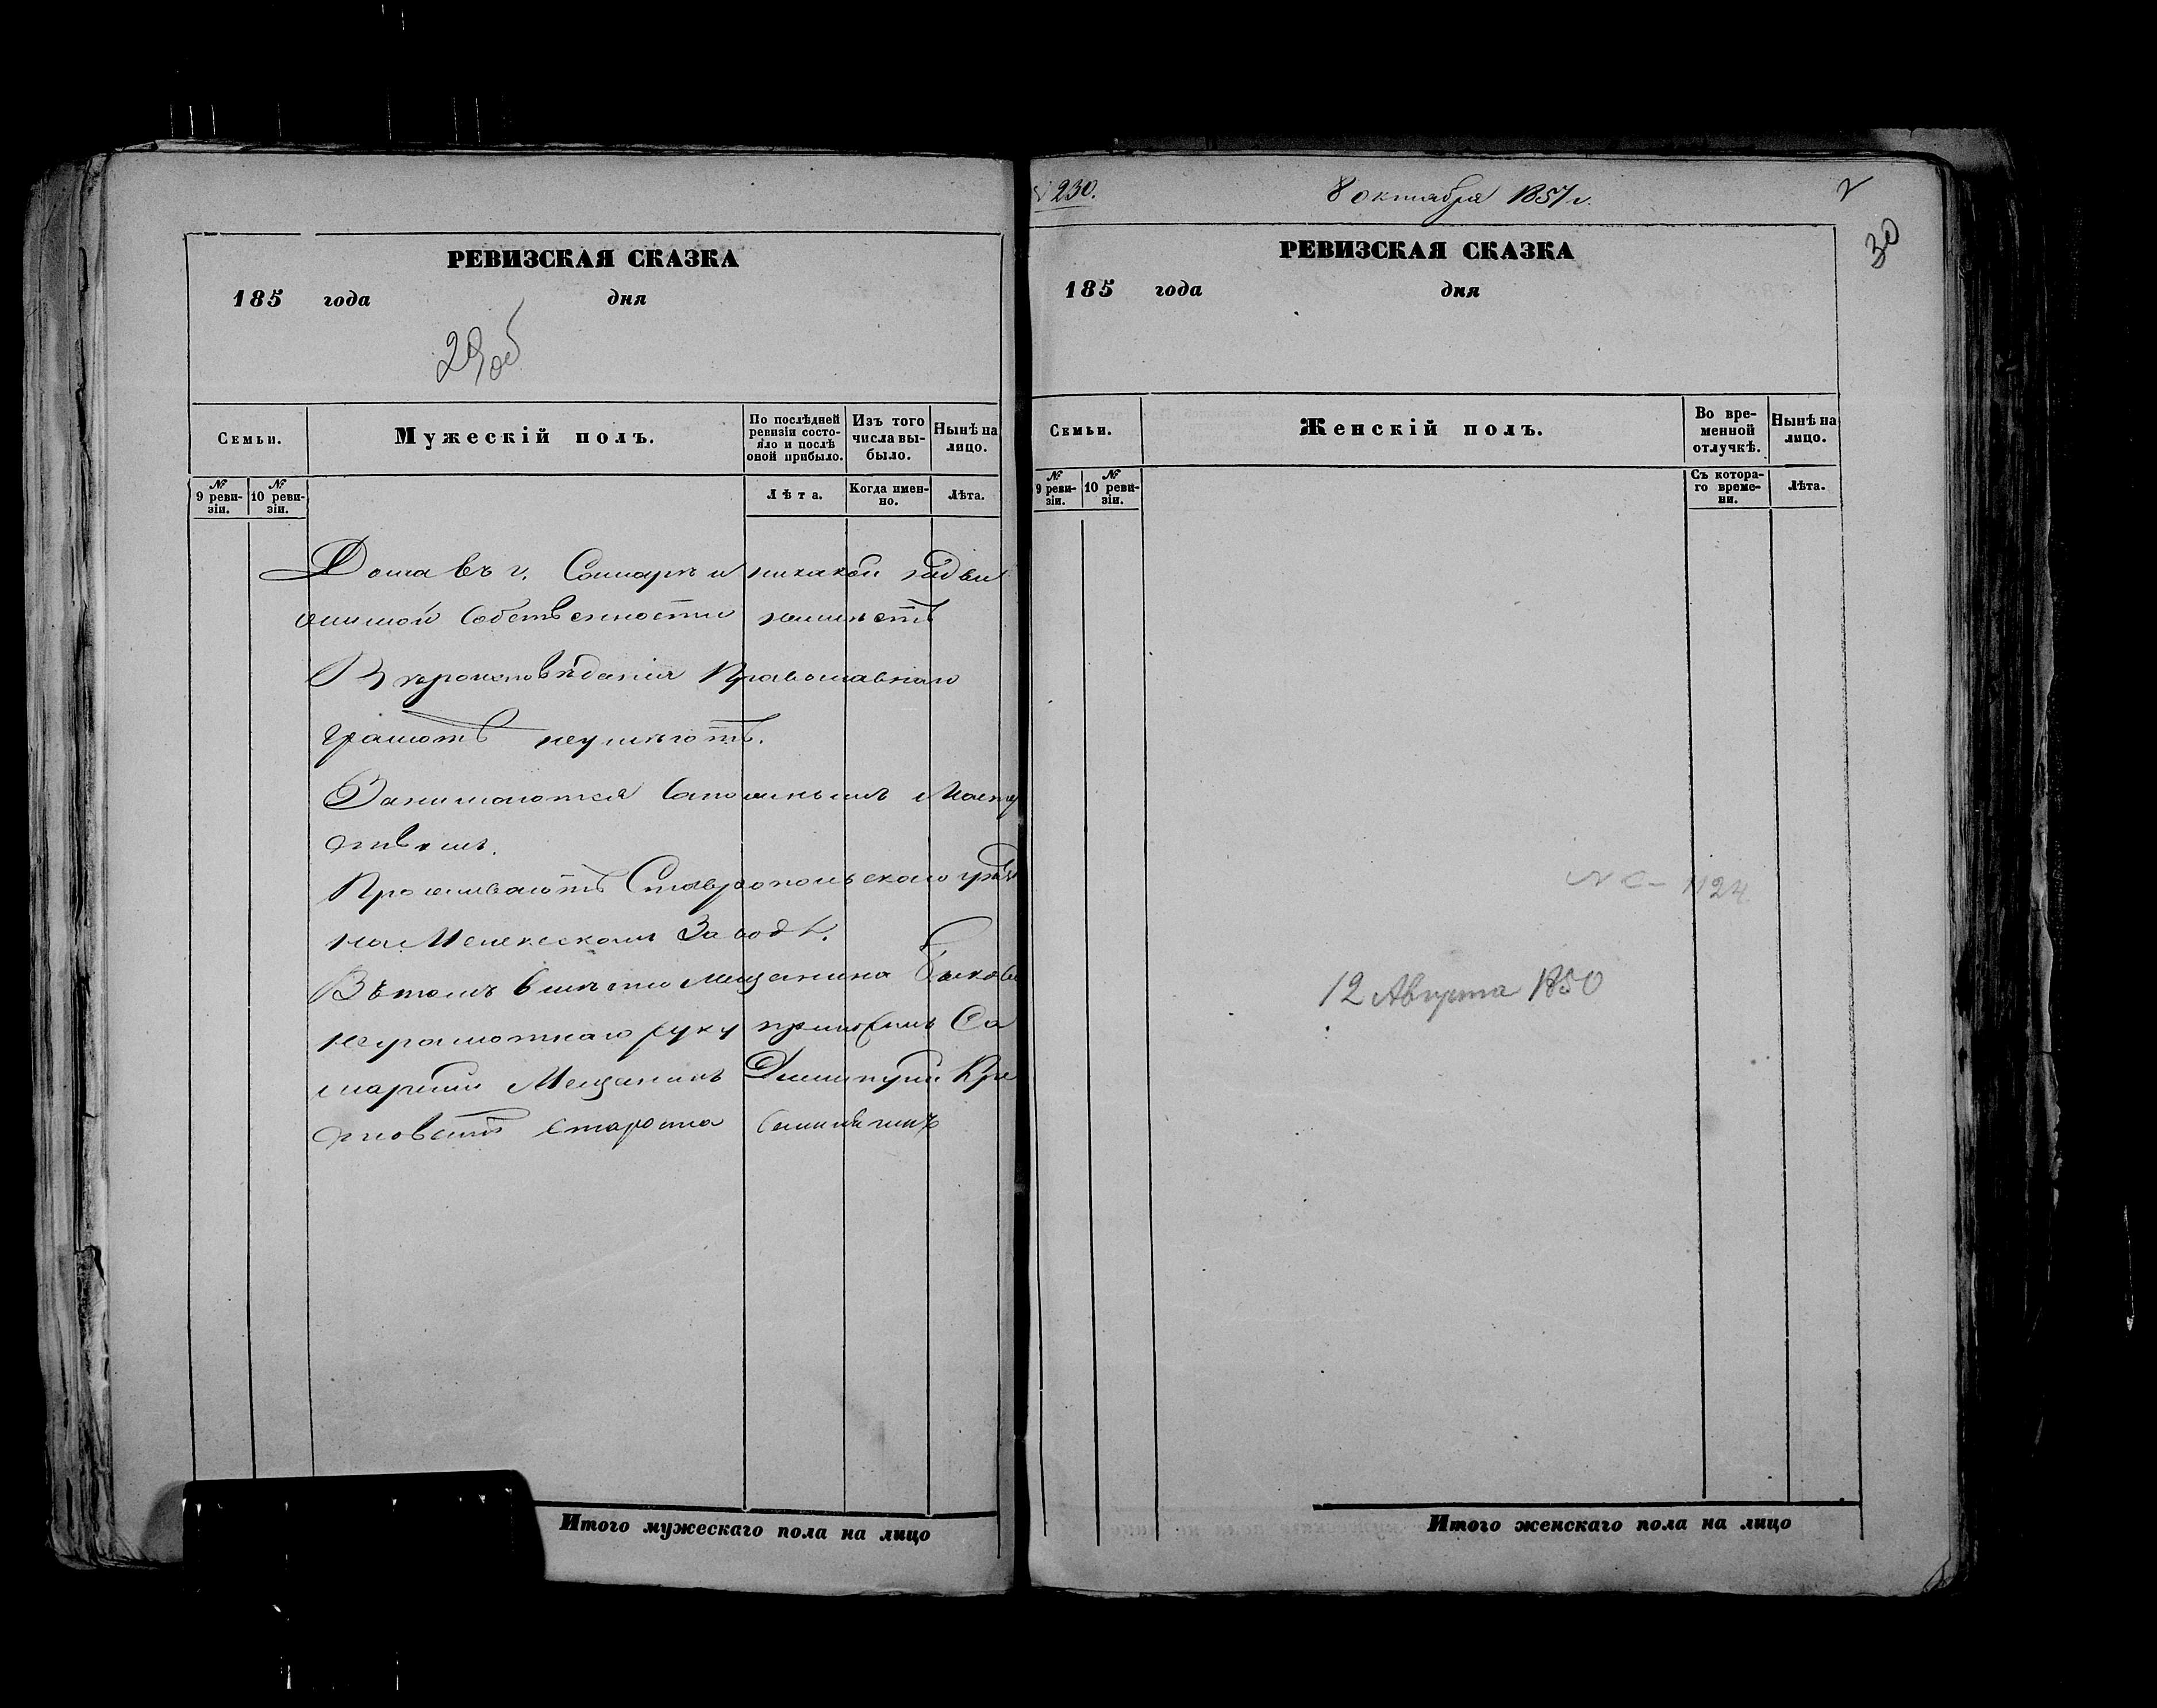 РЕВИЗСКАЯ СКАЗКА
185 года дня
29об
Семьи.
Мужескій полъ.
По послѣдней ревизіи состояло и послѣ оной прибыло.
Изъ того числа выбыло.
Нынѣ на лицо.
№ 9 ревизіи.
№ 10 ревизіи.
Лѣта.
Когда именно.
Лѣта.
Дома въ г. Самарѣ и никакой недви
жимой собственности неимѣетъ
Вѣроисповѣданія Православнаго
Грамотѣ неумѣютъ.
Занимаются Сапожнымъ Масте
рствомъ.
Проживаютъ Ставропольскаго уѣзда
на Мелекескомъ Заводѣ.
Въ томъ вмѣсто мещанина Быкова
неграмотнаго руку приложилъ Са
марскій Мещанинъ Дмитрій
Староста
Итого мужескаго пола на лицо
230.
8 октября 1857 г.
30
РЕВИЗСКАЯ СКАЗКА
185 года дня
Семьи.
Женскій полъ.
Во временной отлучкѣ.
Нынѣ на лицо.
№ 9 ревизіи.
№ 10 ревизіи.
Съ котораго времени.
Лѣта.
1124
12 Августа 1850
Итого женскаго пола на лицо